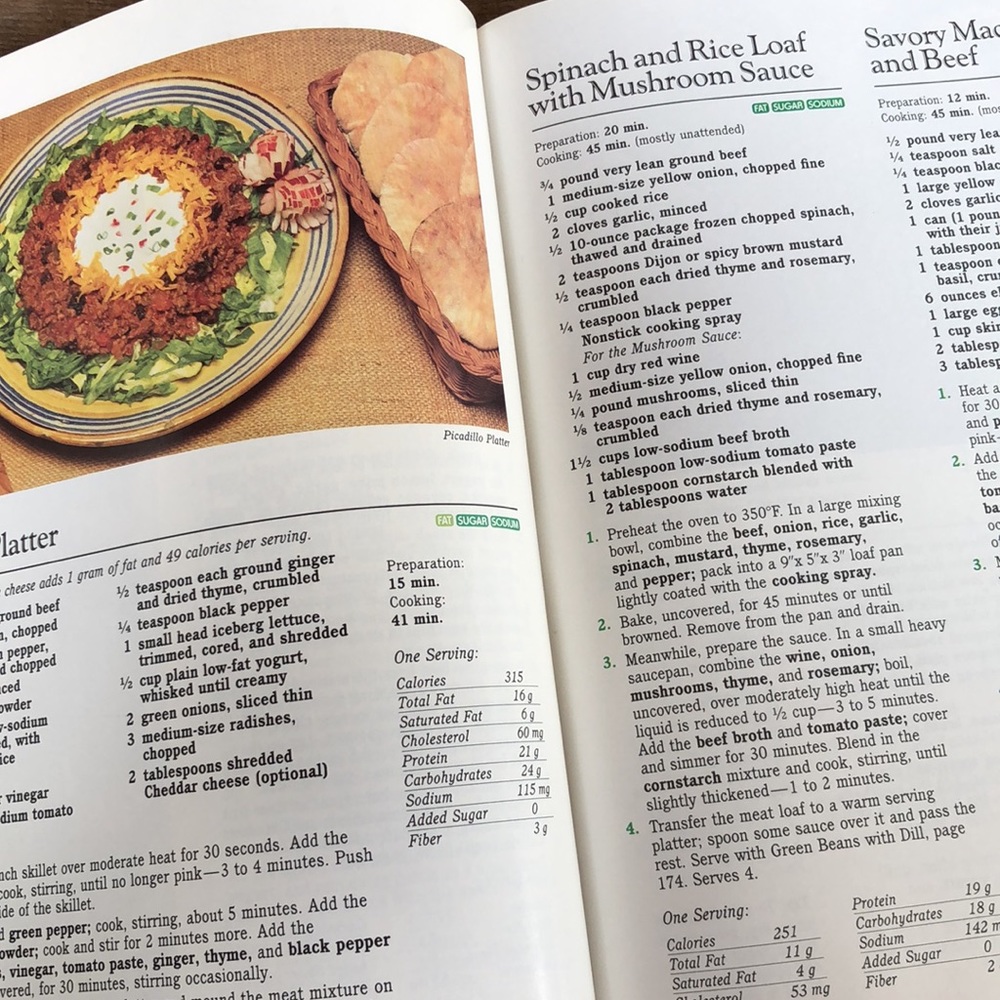 Picadillo Platter
latter
FAT SUGAR SODIUM
cheese adds 1 gram of fat and 49 calories per serving.
round beef
, chopped
pepper,
d chopped
ced
owder
-sodium
d, with
ice
vinegar
dium tomato
½ teaspoon each ground ginger
and dried thyme, crumbled
¼ teaspoon black pepper
1 small head iceberg lettuce,
trimmed, cored, and shredded
½ cup plain low-fat yogurt,
whisked until creamy
2 green onions, sliced thin
3 medium-size radishes,
chopped
2 tablespoons shredded
Cheddar cheese (optional)
Preparation:
15 min.
Cooking:
41 min.
One Serving:
Calories 315
Total Fat 16 g
Saturated Fat 6 g
Cholesterol 60 mg
Protein 21 g
Carbohydrates 24 g
Sodium 115 mg
Added Sugar 0
Fiber 3 g
nch skillet over moderate heat for 30 seconds. Add the
cook, stirring, until no longer pink—3 to 4 minutes. Push
ide of the skillet.
d green pepper; cook, stirring, about 5 minutes. Add the
owder; cook and stir for 2 minutes more. Add the
, vinegar, tomato paste, ginger, thyme, and black pepper
vered, for 30 minutes, stirring occasionally.
the meat mixture on
Spinach and Rice Loaf
with Mushroom Sauce
FAT SUGAR SODIUM
Preparation: 20 min.
Cooking: 45 min. (mostly unattended)
¾ pound very lean ground beef
1 medium-size yellow onion, chopped fine
½ cup cooked rice
2 cloves garlic, minced
½ 10-ounce package frozen chopped spinach,
thawed and drained
2 teaspoons Dijon or spicy brown mustard
½ teaspoon each dried thyme and rosemary,
crumbled
¼ teaspoon black pepper
Nonstick cooking spray
For the Mushroom Sauce:
1 cup dry red wine
½ medium-size yellow onion, chopped fine
¼ pound mushrooms, sliced thin
⅛ teaspoon each dried thyme and rosemary,
crumbled
1½ cups low-sodium beef broth
1 tablespoon low-sodium tomato paste
1 tablespoon cornstarch blended with
2 tablespoons water
1. Preheat the oven to 350°F. In a large mixing
bowl, combine the beef, onion, rice, garlic,
spinach, mustard, thyme, rosemary,
and pepper; pack into a 9"x 5"x 3" loaf pan
lightly coated with the cooking spray.
2. Bake, uncovered, for 45 minutes or until
browned. Remove from the pan and drain.
3. Meanwhile, prepare the sauce. In a small heavy
saucepan, combine the wine, onion,
mushrooms, thyme, and rosemary; boil,
uncovered, over moderately high heat until the
liquid is reduced to ½ cup—3 to 5 minutes.
Add the beef broth and tomato paste; cover
and simmer for 30 minutes. Blend in the
cornstarch mixture and cook, stirring, until
slightly thickened—1 to 2 minutes.
4. Transfer the meat loaf to a warm serving
platter; spoon some sauce over it and pass the
rest. Serve with Green Beans with Dill, page
174. Serves 4.
One Serving:
Calories 251
Total Fat 11 g
Saturated Fat 4 g
53 mg
Protein 19 g
Carbohydrates 18 g
Sodium 142 m
Added Sugar 0
Fiber 2
Savory Mac
and Beef
Preparation: 12 min.
Cooking: 45 min. (mos
½ pound very lea
¼ teaspoon salt
¼ teaspoon blac
1 large yellow
2 cloves garlic
1 can (1 poun
with their j
1 tablespoon
1 teaspoon
basil, cru
6 ounces el
1 large egg
1 cup skim
2 tablesp
3 tablesp
1. Heat a
for 30
and p
pink
2. Add
the
ton
ba
oc
o
3. M